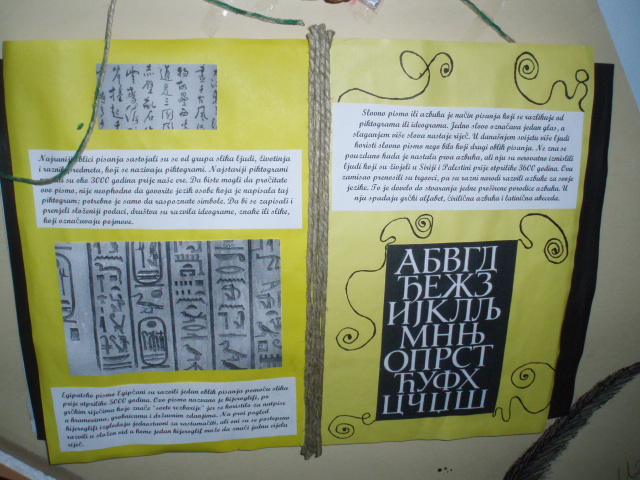 Najraniji oblici pisanja sastojali su se od grupa slika ljudi, životinja
i raznih predmeta, koji se nazivaju piktogrami. Najstariji piktogrami
su oko 3000 godina prije naše ere. Da biste mogli da pročitate
ovo pismo, nije neophodno da govorite jezik osobe koja je napisala taj
piktogram; potrebno je samo da raspoznate simbole. Da bi se zapisali i
prenjeli složeniji podaci, društva su razvila ideograme, znake ili slike,
koji označavaju pojmove.
Egipatsko pismo Egipćani su razvili jedan oblik pisanja pomoću slika
prije otprilike 5000 godina. Ovo pismo nazvano je hijeroglifi, po
grčkim riječima koje znače "svete rezbarije" jer se koristila za natpise
u hramovima, grobnicama i državnim zdanjima. Na prvi pogled
hijeroglifi izgledaju jednostavni za rastumačiti, ali oni su se postepeno
razvili u složen vid u kome jedan hijeroglif može da znači jednu cijelu
riječ.
Slovno pismo ili azbuka je način pisanja koji se razlikuje od
piktograma ili ideograma. Jedno slovo označava jedan glas, a
slaganjem više slova nastaje riječ. U današnjem svijetu više ljudi
koristi slovno pismo nego bilo koji drugi oblik pisanja. Ne zna se
pouzdano kada je nastala prva azbuka, ali nju su verovatno izmislili
ljudi koji su živjeli u Siriji i Palestini prije otprilike 3600 godina. Ovu
zamisao prenosili su trgovci, pa su razni narodi razvili azbuke za svoje
jezike. To je dovelo do stvaranja jedne proširene porodice azbuka. U
nju spadaju grčki alfabet, ćirilična azbuka i latinična abeceda.
АБВГД
ЂЕЖЗ
ИЈКЛЉ
МНЊ
ОПРСТ
ЋУФХ
ЦЧЏШ